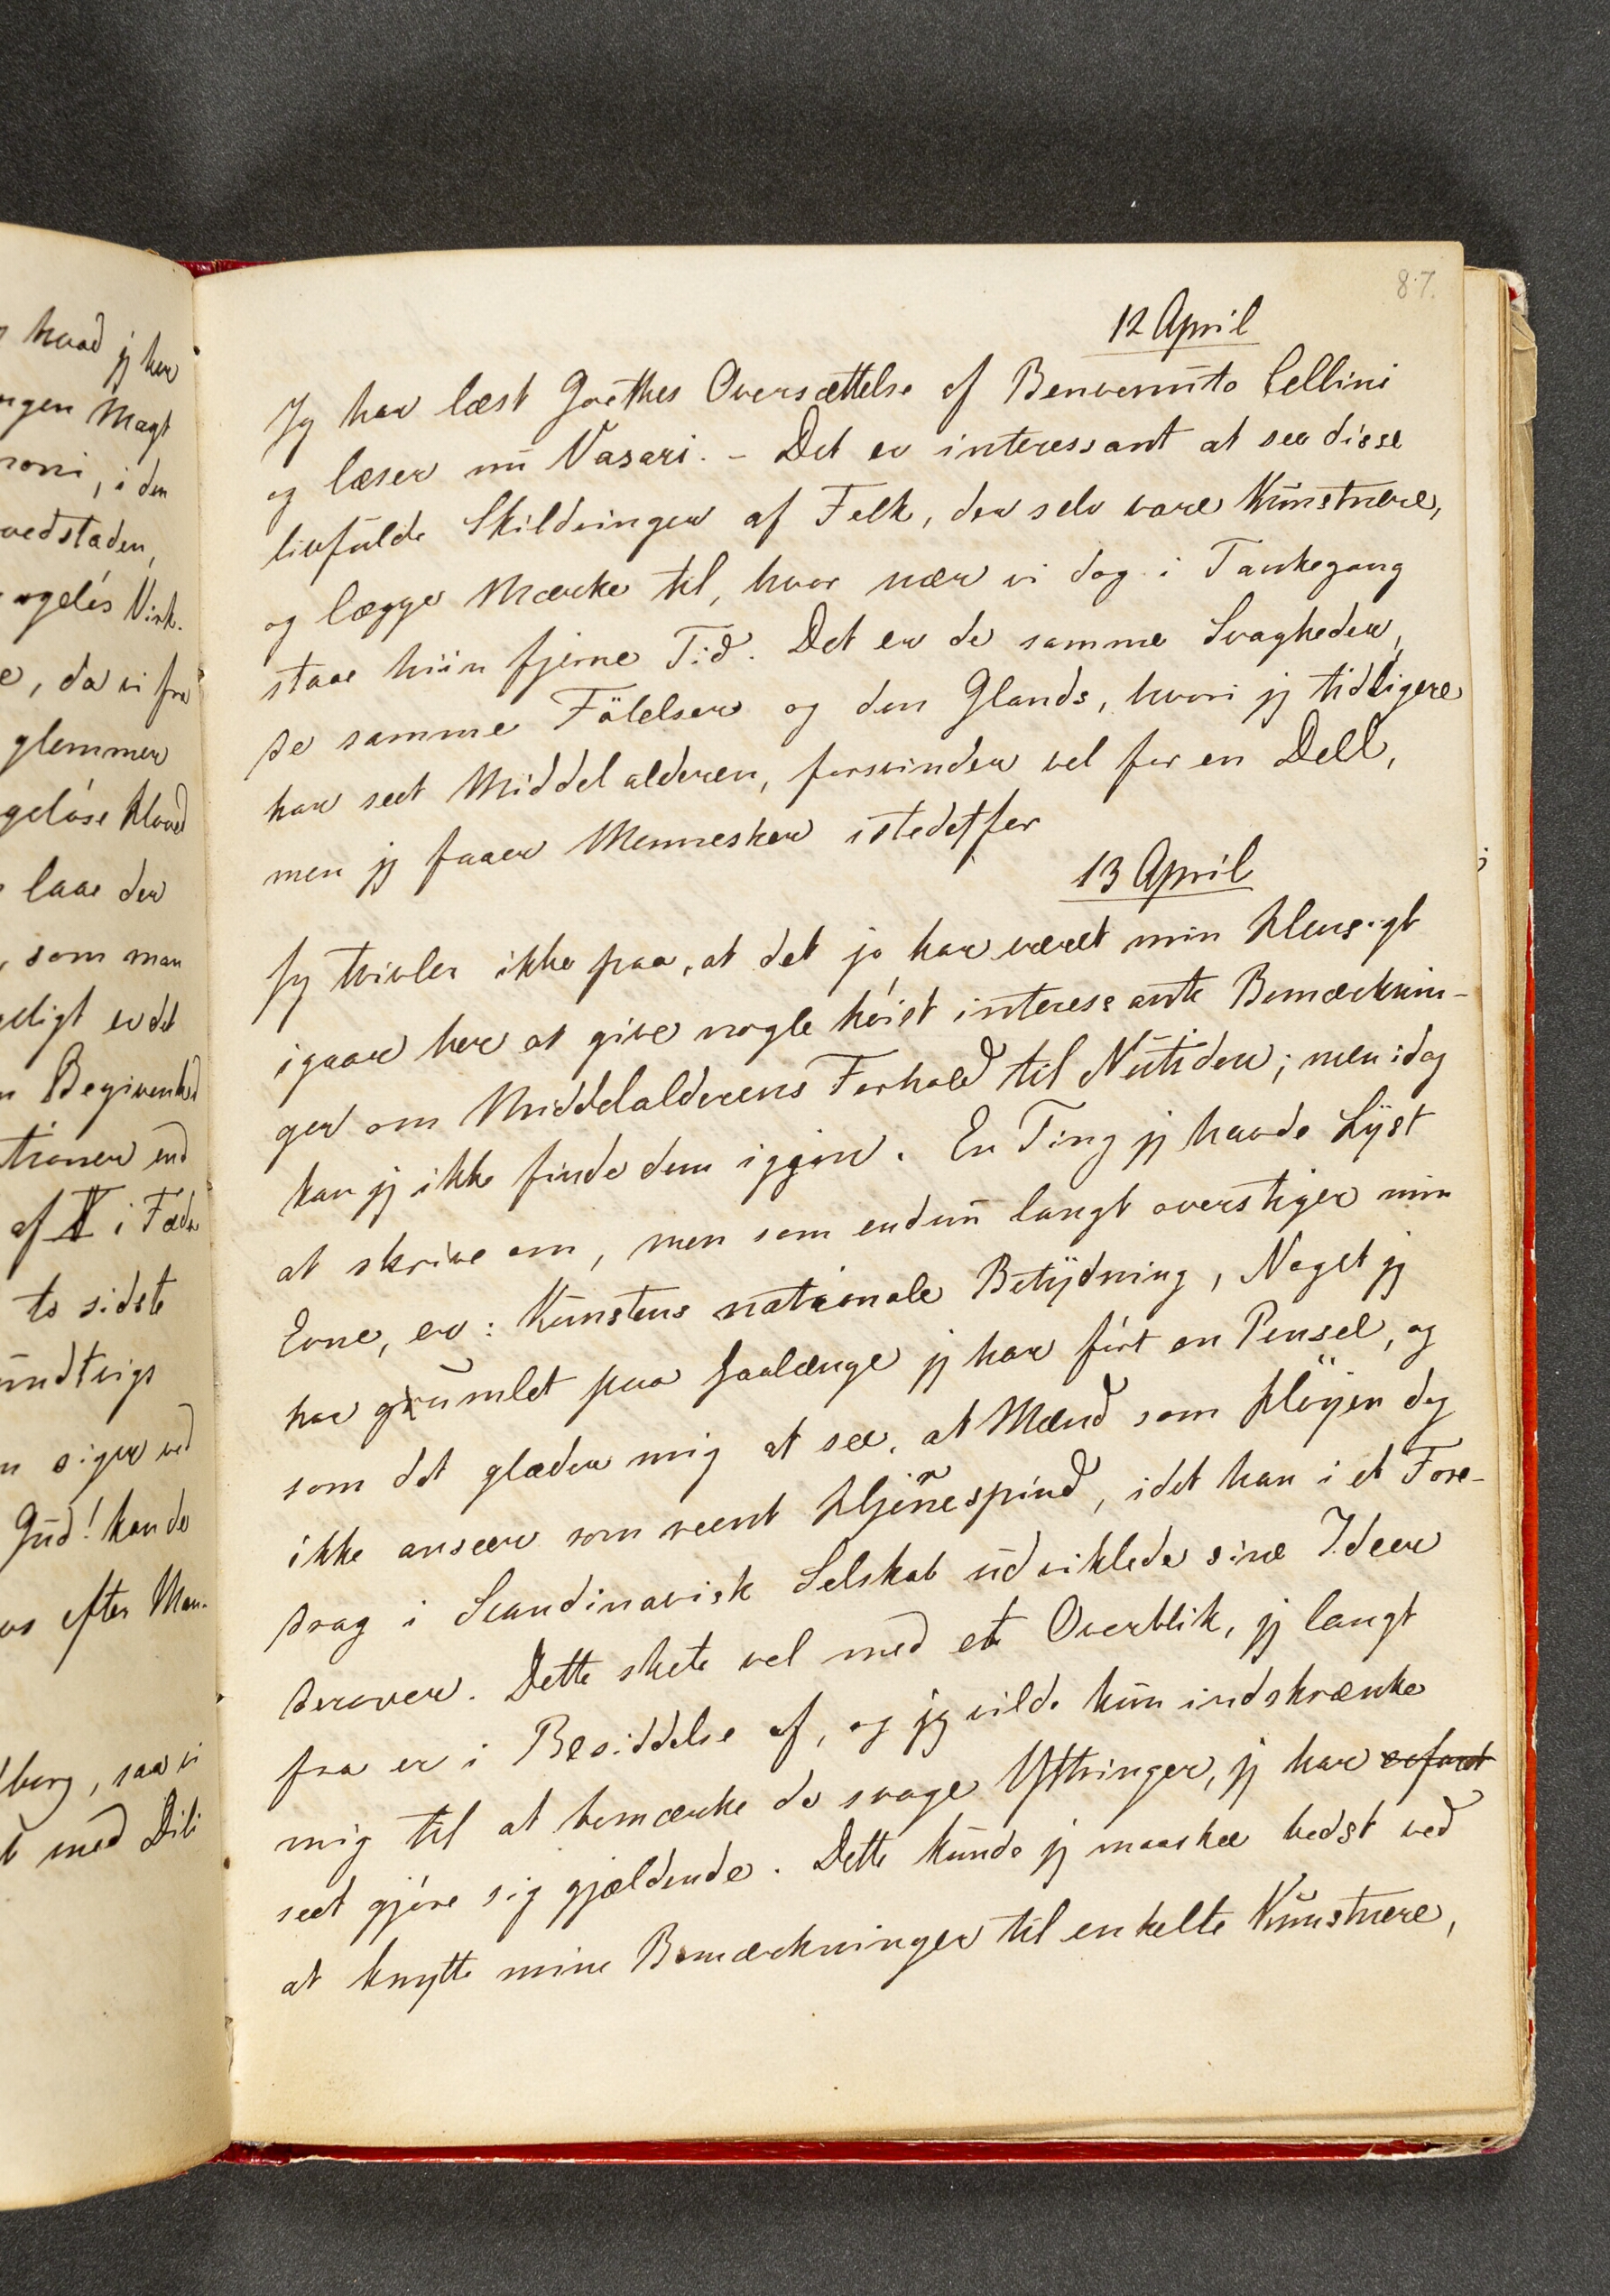 hvad jeg her
ngen Magt
roni, i den
vedstaden,
ngelós Virk.
e, da vi fra
glemmer
gelóse Hoved
laae der
, som man
eligt er det
n Begivenhed
tioner end
af V i Fædr
to sidste
undtvigs
n siger ved
Gud! kan de
os efter Man-
borg, saa vi
t med Dili
87.
12 April
Jeg har læst Goethes Oversættelse af Benvenuto Cellini
og læser nu Vasari. – Det er interessant at see disse
livfulde Skildringer af Folk, der selv vare Kunstnere,
og lægge Mærke til, hvor nær vi dog i Tankegang
staae hiin fjerne Tid. Det er de samme Svagheder,
de samme Fölelser og den Glands, hvori jeg tidligere
har seet Middelalderen, forsvinder vel for en Deel,
men jeg faaer Mennesker istedetfor
13 April
Jeg tvivler ikke paa, at det jo har været min Hensigt
igaar her at give nogle höist interessante Bemærknin-
ger om Middelalderens Forhold til Nutiden; men idag
kan jeg ikke finde dem iggjen. En Ting jeg havde Lyst
at skrive om, men som endnu langt overstiger min
Evne, er: Kunstens nationale Betydning, Noget jeg
har grumlet paa saalænge jeg har fört en Pensel, og
som det glæder mig at see, at Mænd som Höyen dog
ikke anseer som reent Hjernespind, idet han i et Fore-
drag i Scandinavisk Selskab udviklede sine Ideer
derover. Dette skete vel med et Overblik, jeg langt
fra er i Besiddelse af, og jeg vilde kun indskrænke
mig til at bemærke de svage Yttringer, jeg har erfaret
seet gjöre sig gjældende. Dette kunde jeg maaskee bedst ved
at knytte mine Bemærkninger til enkelte Kunstnere,